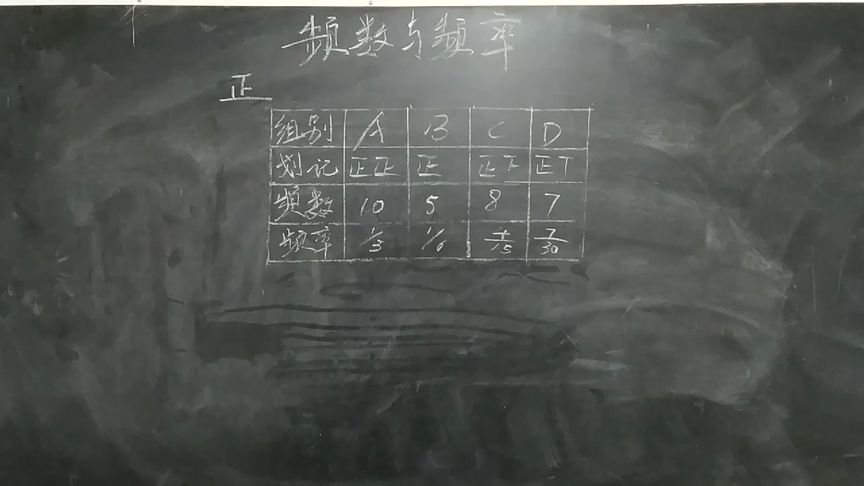 频数与频率
正
组别 A B C D
划记 正正 正 正下 正丅
频数 10 5 8 7
频率 1/3 1/6 4/15 7/30